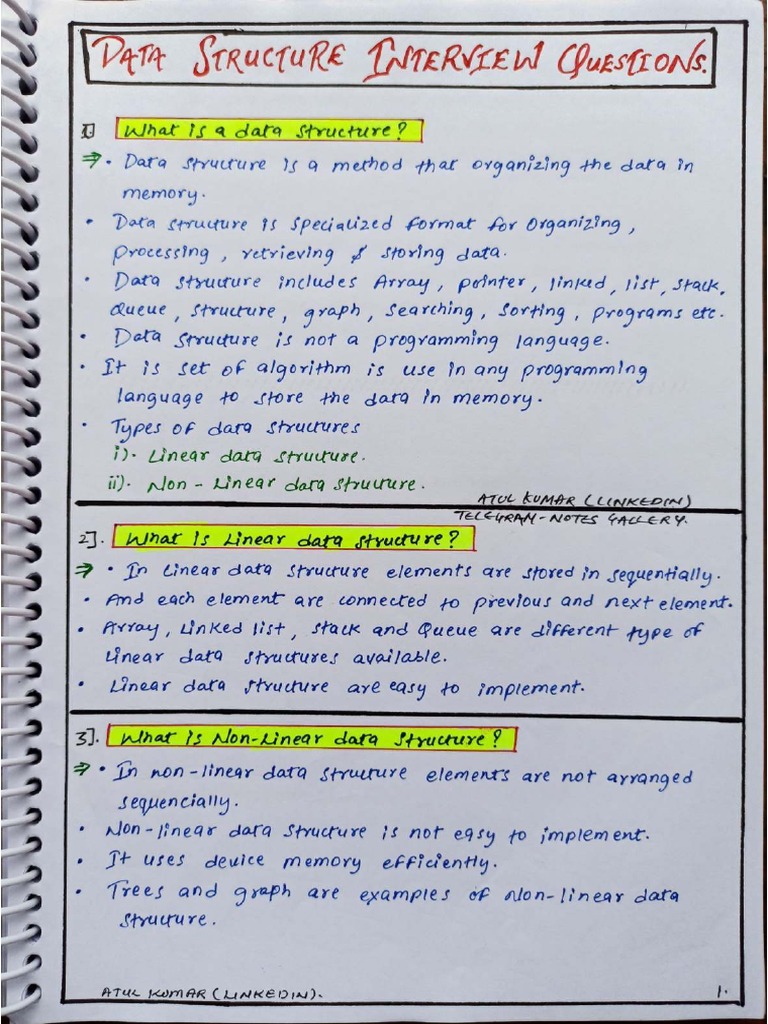 DATA STRUCTURE INTERVIEW QUESTIONS.
1] What is a data structure?
⇒ • Data structure is a method that organizing the data in
memory.
• Data structure is specialized format for organizing,
processing, retrieving & storing data.
• Data structure includes Array, pointer, linked, list, stack,
Queue, structure, graph, searching, sorting, programs etc.
• Data structure is not a programming language.
• It is set of algorithm is use in any programming
language to store the data in memory.
• Types of data structures
i). Linear data structure.
ii). Non - Linear data structure.
ATUL KUMAR (LINKEDIN)
TELEGRAM - NOTES GALLERY.
2]. What is Linear data structure?
⇒ • In Linear data structure elements are stored in sequentially.
• And each element are connected to previous and next element.
• Array, Linked list, stack and Queue are different type of
Linear data structures available.
• Linear data structure are easy to implement.
3]. What is Non-Linear data structure?
⇒ • In non-linear data structure elements are not arranged
sequencially.
• Non-linear data structure is not easy to implement.
• It uses device memory efficiently.
• Trees and graph are examples of Non-linear data
structure.
ATUL KUMAR (LINKEDIN).
1.